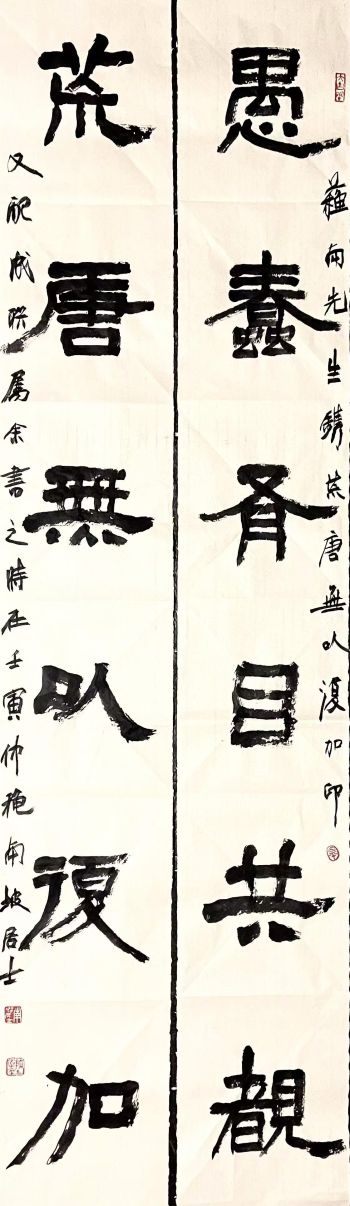 南先生鐫荒唐無以復加印
愚蠢有目共覩
荒唐無以復加
又配成联屬余書之時在壬寅仲秋南坡居士